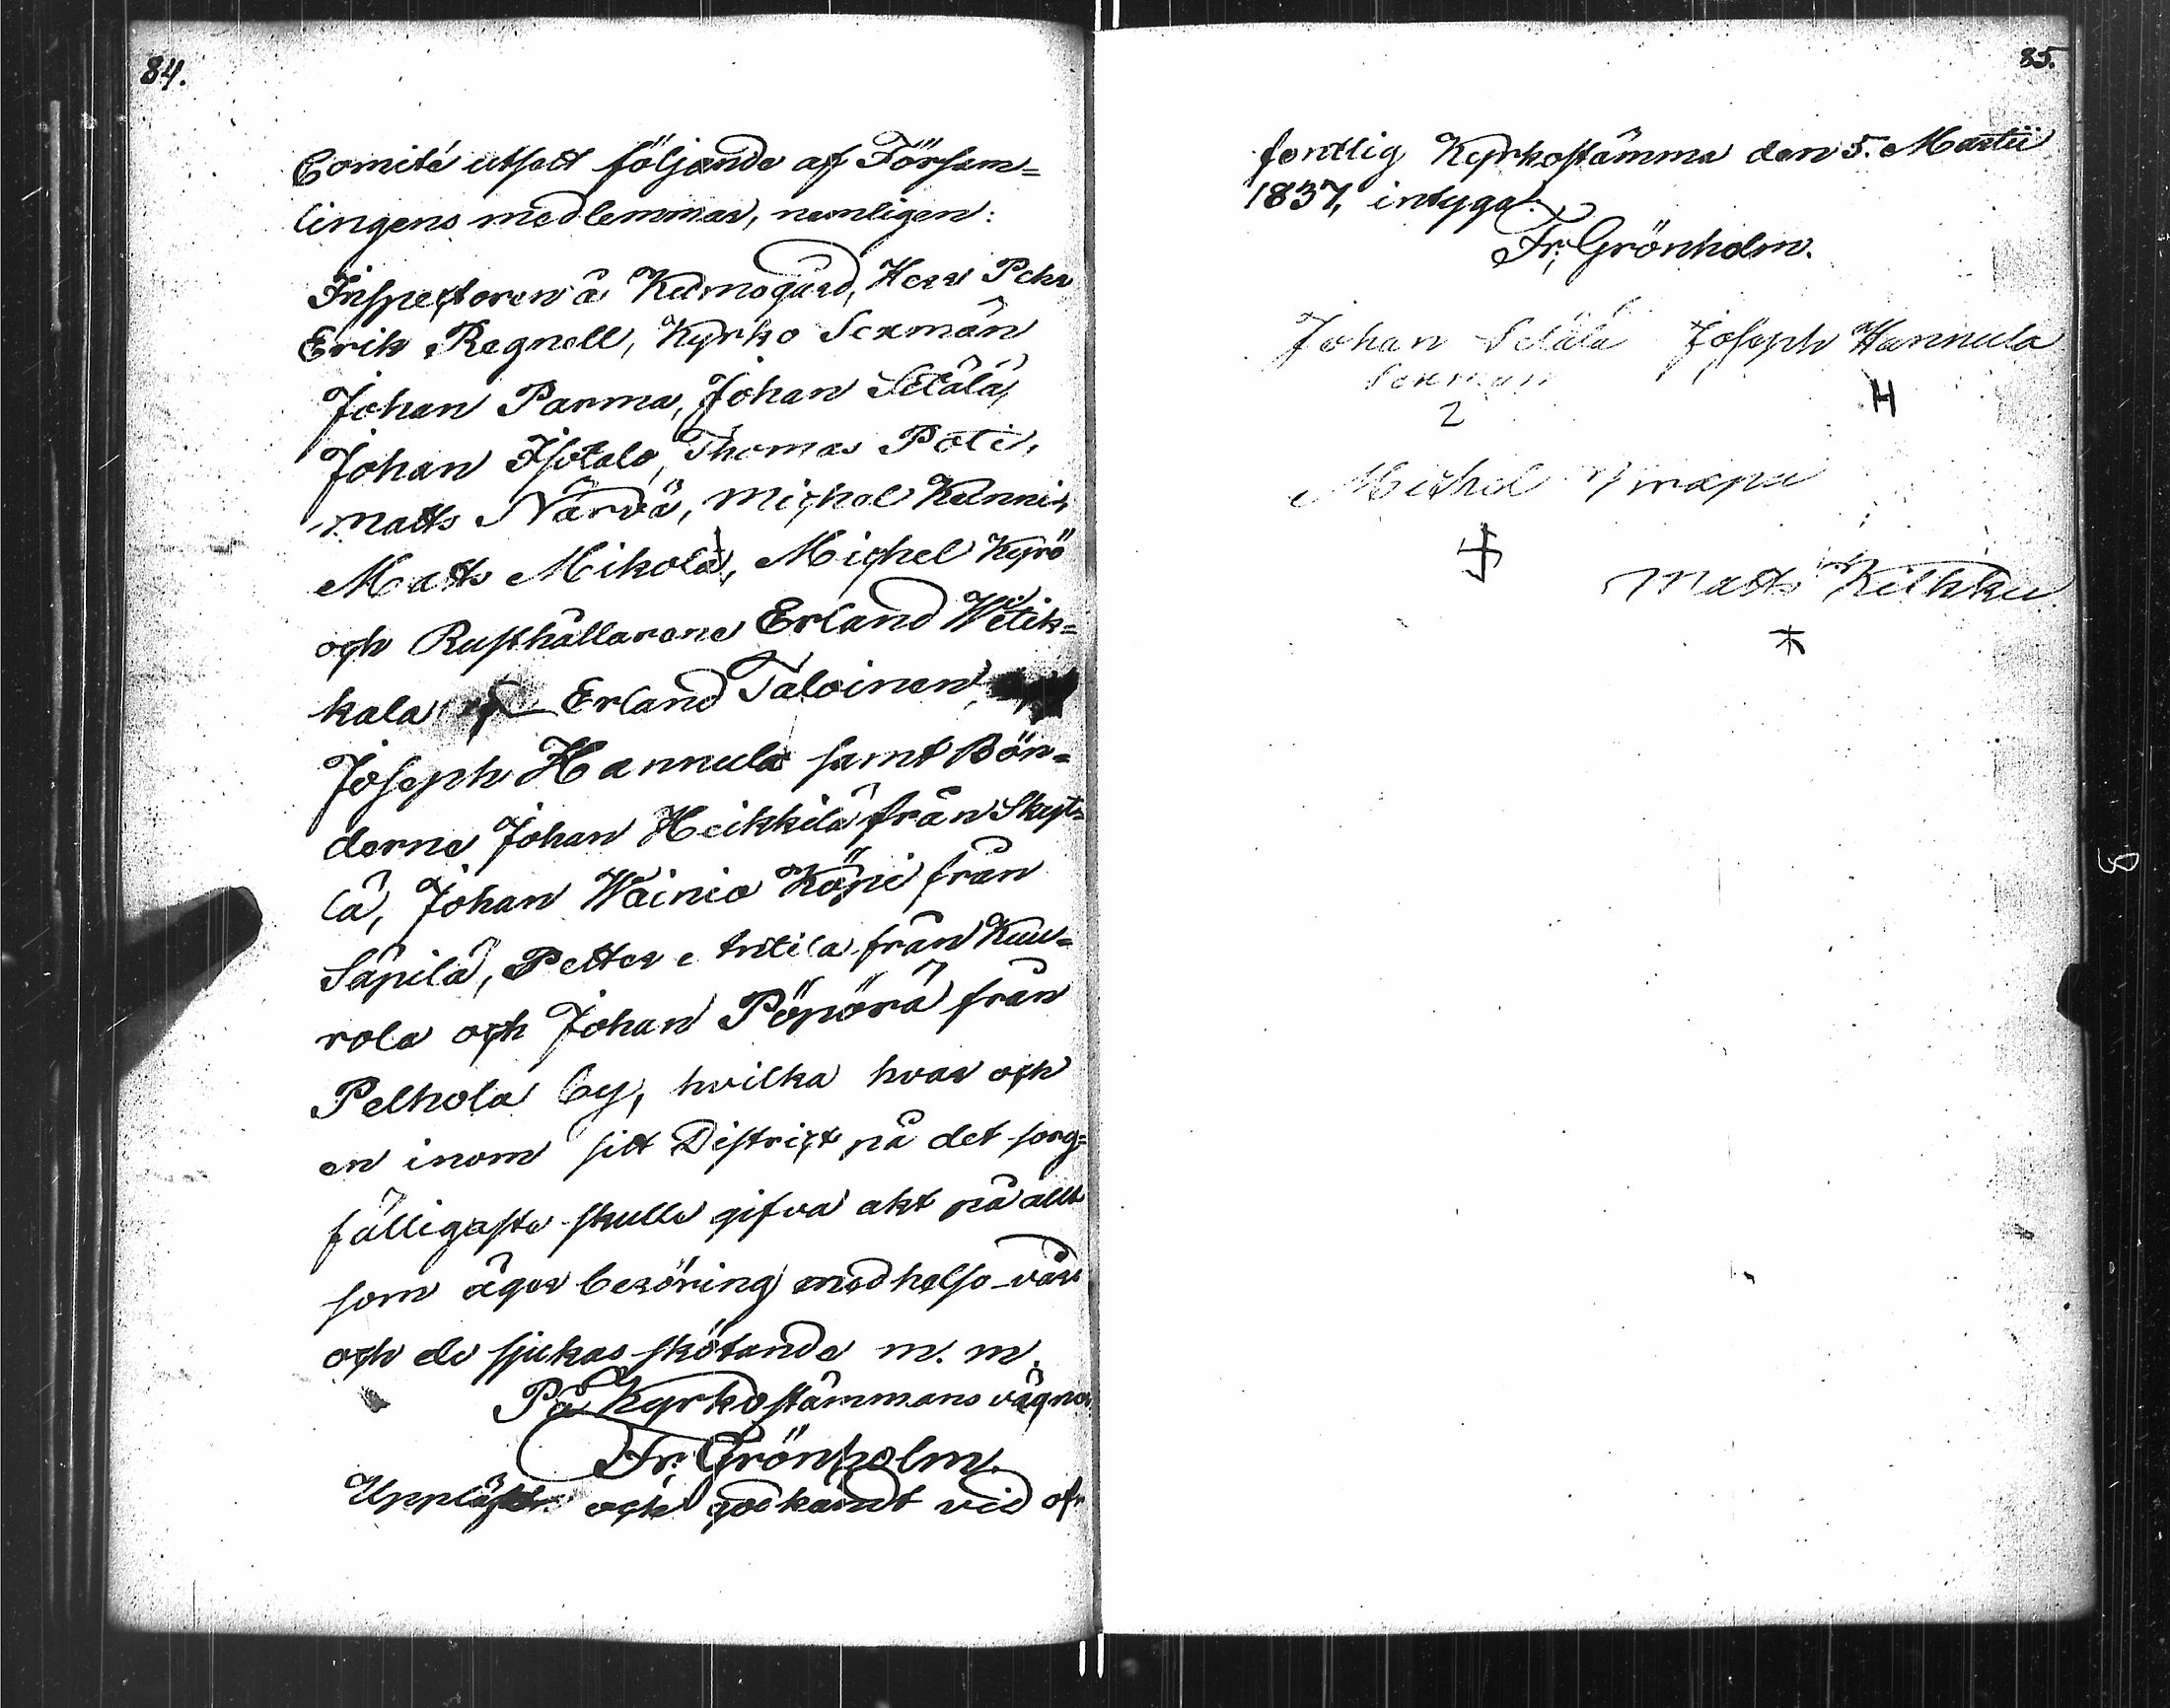 84.
Comité utsett följande af Försam=
lingens medlemmar, nemligen:
Inspectoren å Kumogård, Herr Pehr
Erik Regnell, Kyrko Sexmän
Johan Parma, Johan Sälälä,
Johan Isotalo, Thomas Poti,
Matts Närvä, Michel Kunni,
Matts Mikola, Michel Kyrö
och Rusthållarene Erland Witik=
kala Erland Taloinen
Joseph Hannula samt Bön=
derne Johan Heikkilä från Skyt=
lä, Johan Wäinio Köpi från
Säpilä, Petter Antila från Kuu=
rola och Johan Pöpörä från
Pelhola by, hvilka hvar och
en inom sitt District på det sorg=
fälligaste skulle gifva akt på allt
som äger beröring med helso-vår
och de sjukas skötande m. m.
På Kyrkostämmans vägnar
Fr. Grönholm.
Uppläst och godkändt vid of=
85.
fentlig Kyrkostämma den 5. Martii
1837, intygar
Fr. Grönholm.
Johan Sälälä Joseph Hannula
Sexman H
2
Michel
Matts Kilkku
3